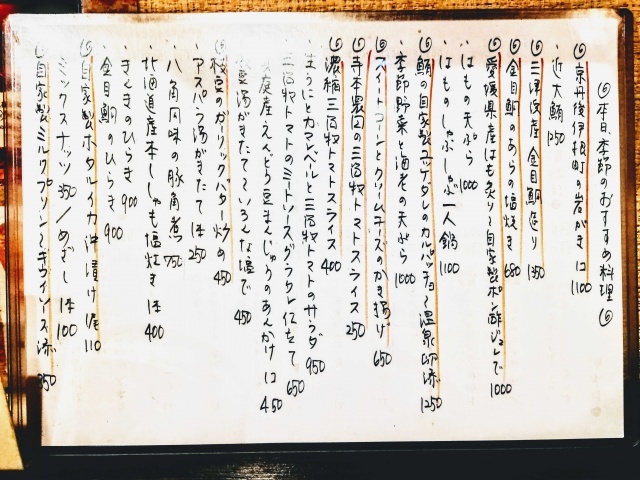 ◎本日季節のおすすめ料理◎
◎京丹後伊根町の岩がき 1コ 1100
・近大鮪 1250
◎三津浜産金目鯛造り 1350
◎金目鯛のあらの塩焼き 680
◎愛媛県産はも炙り 自家製ポン酢ジュレで 1000
・はもの天ぷら 1000
・はものしゃぶしゃぶ一人鍋 1100
◎鮪の自家製ユッケダレのカルパッチョ〜温泉卵添 1250
・季節野菜と海老の天ぷら 1000
◎スイートコーンとクリームチーズのかき揚げ 650
◎寺本農園の三宿牧トマトスライス 250
◎濃縮三宿牧トマトスライス 400
・生うにとカマンベールと三宿牧トマトのサラダ 950
・三宿牧トマトのミートソースグラタン仕立て 650
産えんどう豆まんじゅうのあんかけ 1コ 450
豆湯がきたて〜いろんな塩で 450
◎枝豆のガーリックバター炒め 450
・アスパラ湯がきたて 1本 250
・八角風味の豚角煮 750
・北海道産本ししゃも塩焼き 1本 400
・きんきのひらき 900
・金目鯛のひらき 900
◎自家製ホタルイカ沖漬け 1尾 110
・ミックスナッツ 350/めざし 1本 100
◎自家製ミルクプリン〜キウイソース添 350